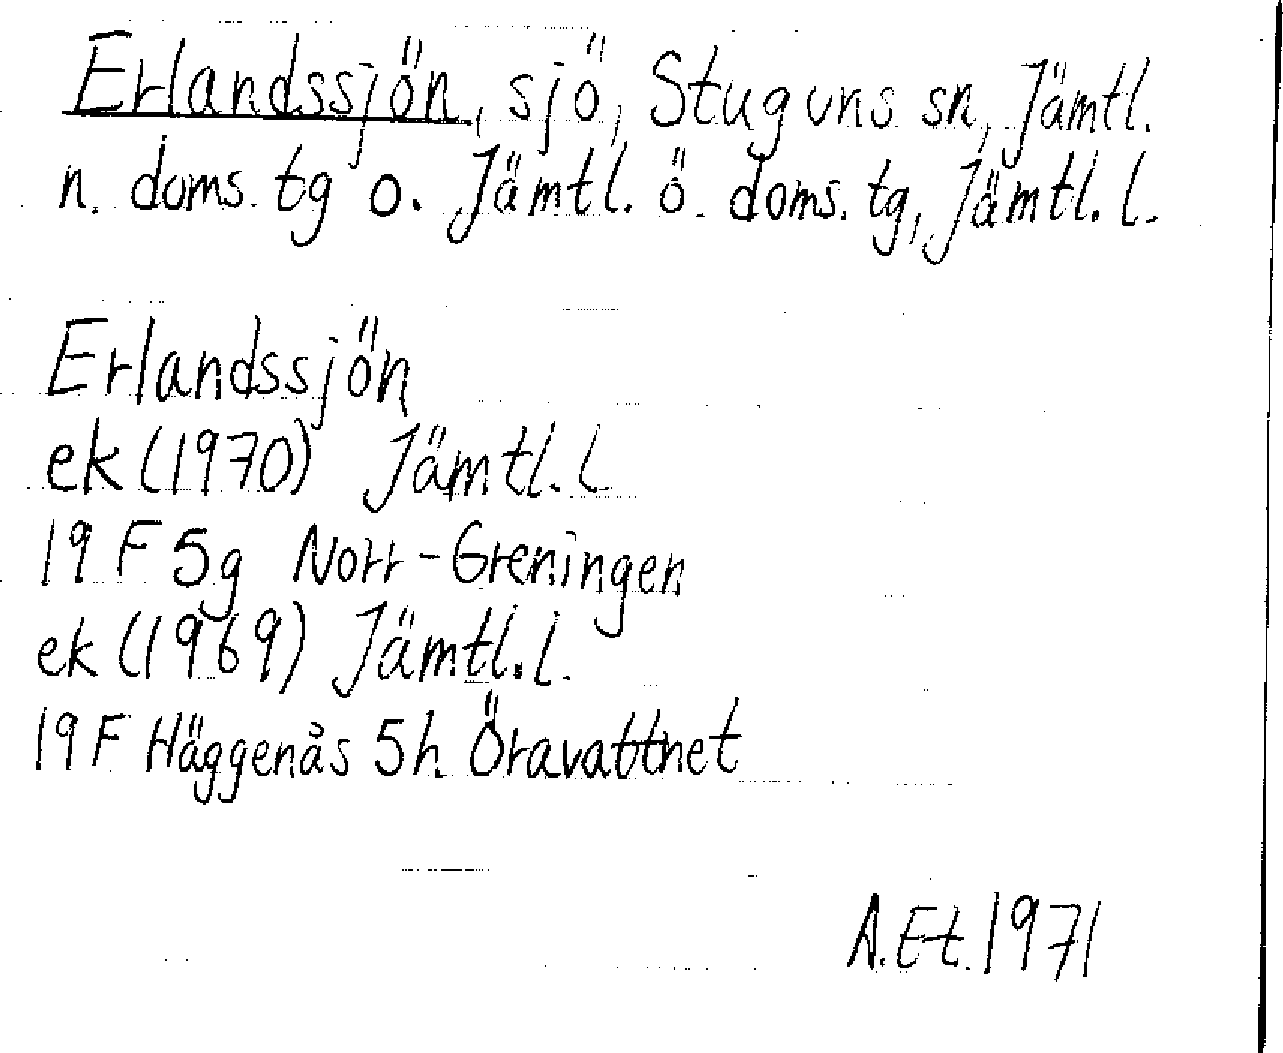 Erlandssjön, sjö, Stuguns sn, Jämtl.
n. doms. tg o. Jämtl. ö. doms. tg, Jämtl. l.
Erlandssjön
ek (1970) Jämtl. l
19 F 5g Norr-Greningen
ek (1969) Jämtl. l.
19 F Häggenås 5h Öravattnet
A. Et. 1971